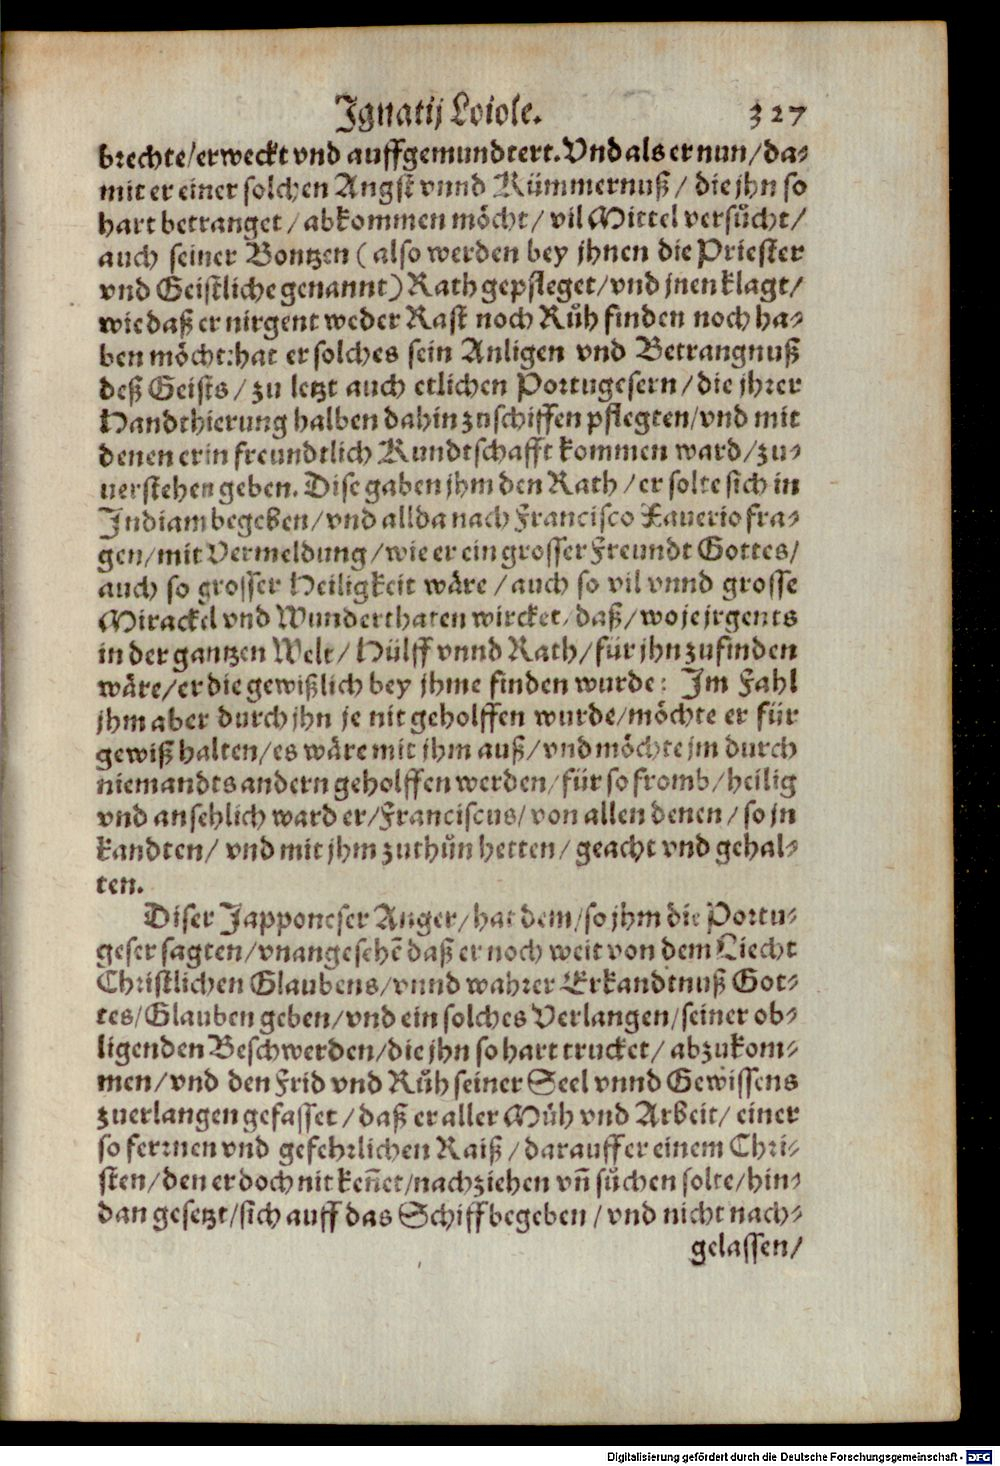 Ignatij Loiole. 327
brechte/erweckt vnd auffgemundtert. Vnd als er nun/da-
mit er einer solchen Angst vnnd Kümmernuß/ die jhn so
hart betranget/ abkommen möcht/ vil Mittel versůcht/
auch seiner Bontzen (also werden bey jhnen die Priester
vnd Geistliche genannt) Rath gepfleget/vnd jnen klagt/
wie daß er nirgent weder Rast noch Růh finden noch ha-
ben möcht: hat er solches sein Anligen vnd Betrangnuß
deß Geists/ zu letzt auch etlichen Portugesern/die jhrer
Handthierung halben dahin zuschiffen pflegten/vnd mit
denen er in freundtlich Kundtschafft kommen ward/zu-
uerstehen geben. Dise gaben jhm den Rath/er solte sich in
Indiam begeben/vnd allda nach Francisco Xauerio fra-
gen/mit Vermeldung/wie er ein grosser Freundt Gottes/
auch so grosser Heiligkeit wäre/auch so vil vnnd grosse
Mirackel vnd Wunderthaten wircket/daß/wo je jrgents
in der gantzen Welt/ Hülff vnnd Rath/für jhn zufinden
wäre/er die gewißlich bey jhme finden wurde: Im Fahl
jhm aber durch jhn je nit geholffen wurde/möchte er für
gewiß halten/es wäre mit jhm auß/vnd möchte jm durch
niemandts andern geholffen werden/für so fromb/heilig
vnd ansehlich ward er/Franciscus/von allen denen/so jn
kandten/ vnd mit jhm zuthůn hetten/ geacht vnd gehal-
ten.
Diser Japponeser Anger/hat dem/so jhm die Portu-
geser sagten/vnangesehē daß er noch weit von dem Liecht
Christlichen Glaubens/vnnd wahrer Erkandtnuß Got-
tes/Glauben geben/vnd ein solches Verlangen/seiner ob-
ligenden Beschwerden/die jhn so hart trucket/ abzukom-
men/vnd den Frid vnd Růh seiner Seel vnnd Gewissens
zuerlangen gefasset/daß er aller Můh vnd Arbeit/ einer
so ferrnen vnd gefehrlichen Raiß/darauff er einem Chri-
sten/den er doch nit keñet/nachziehen vñ sůchen solte/hin-
dan gesetzt/sich auff das Schiff begeben/vnd nicht nach-
gelassen/
Digitalisierung gefördert durch die Deutsche Forschungsgemeinschaft - DFG